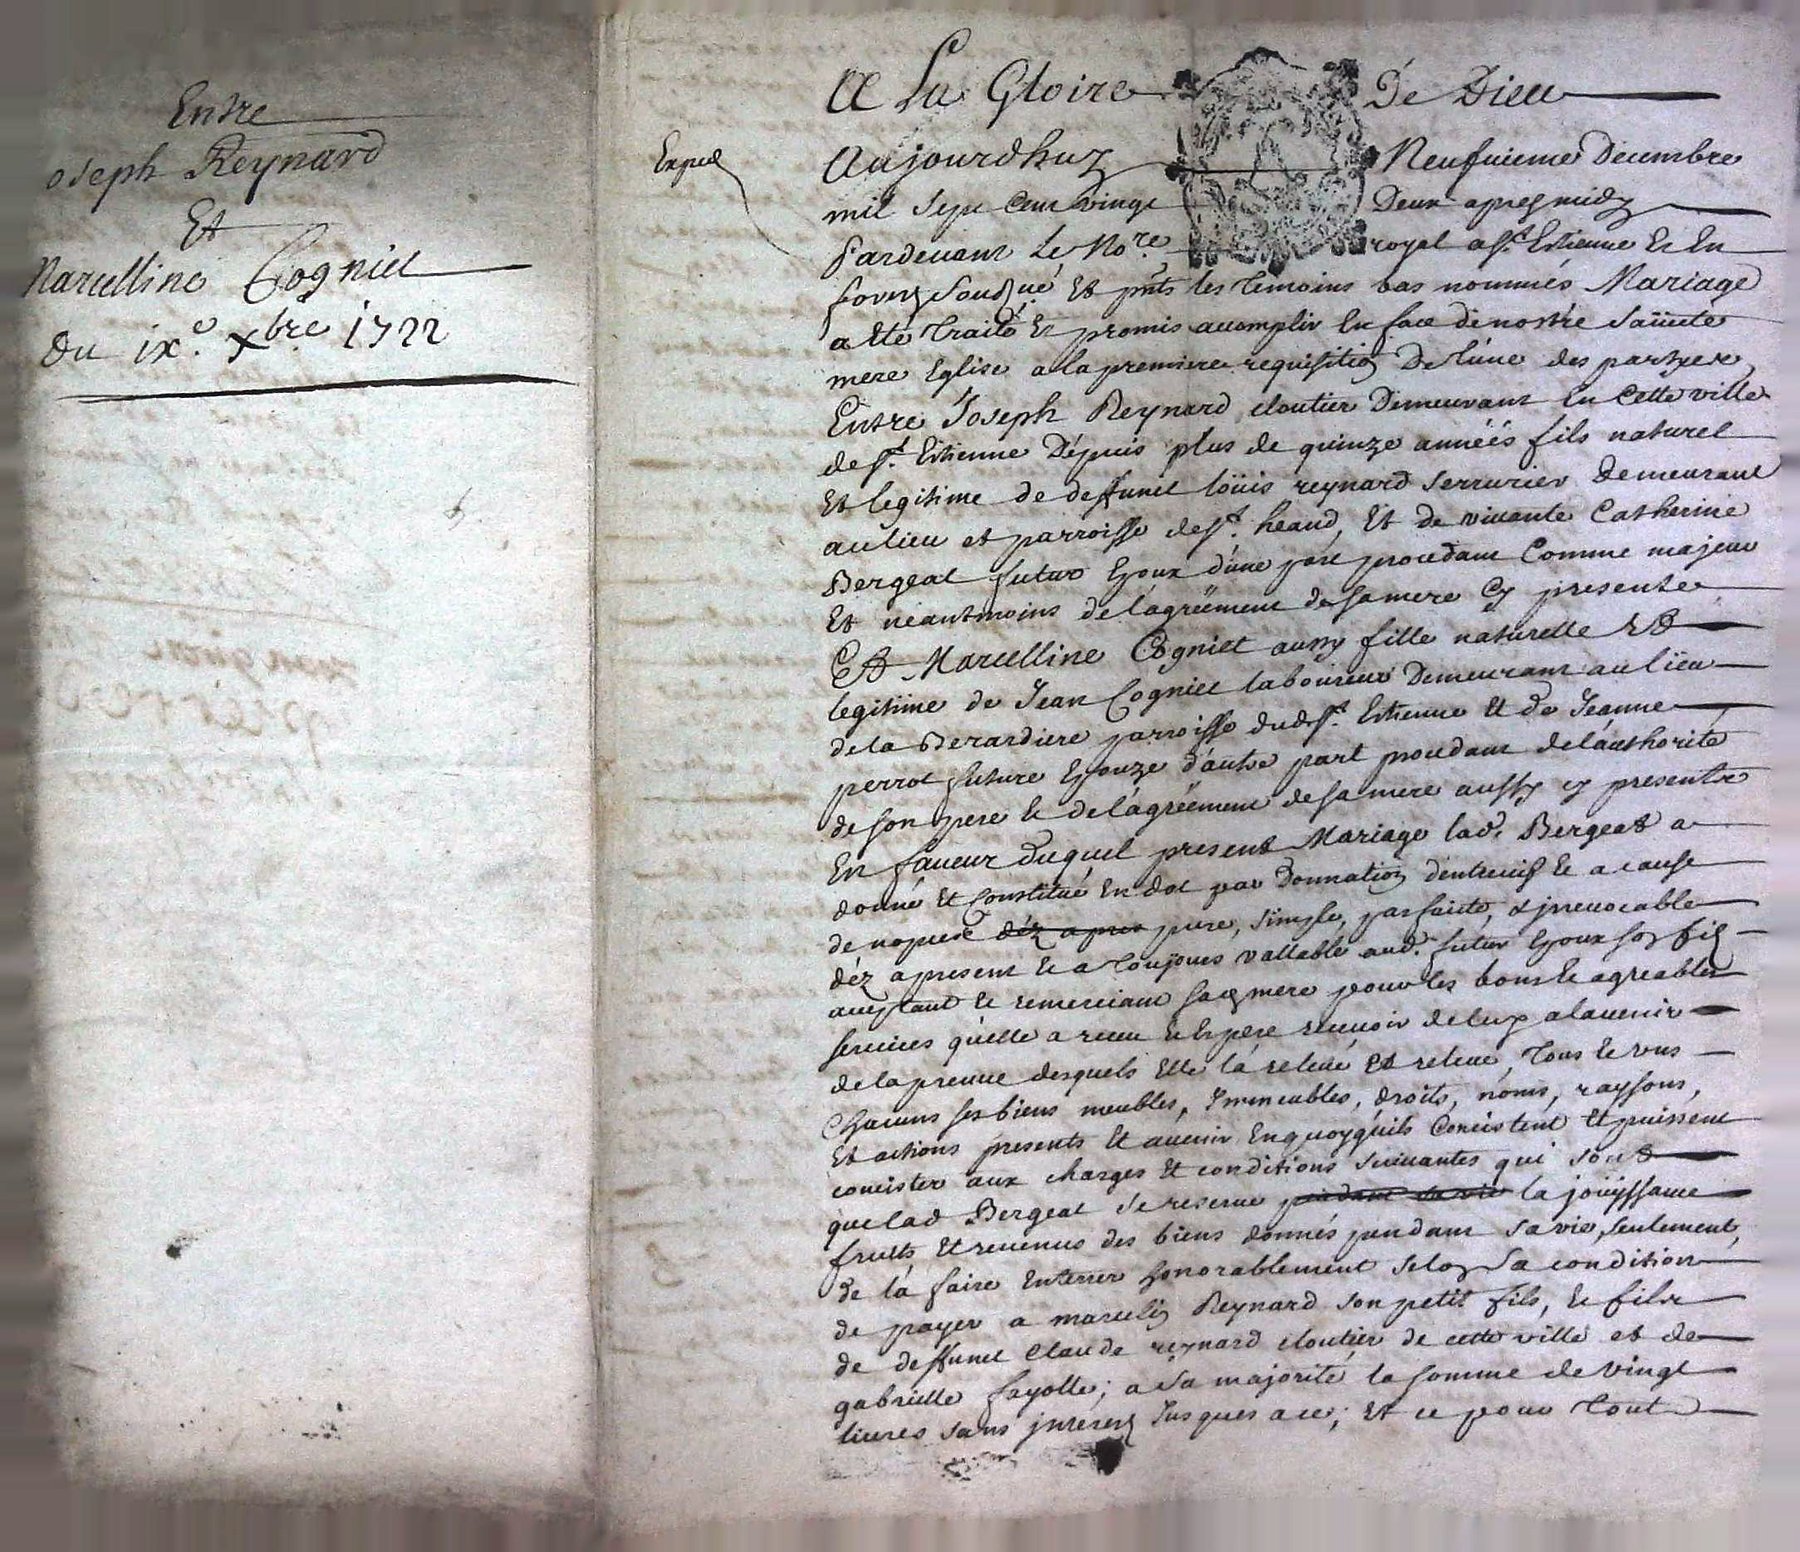 Entre
oseph Reynard
Et
Marcelline Cogniet
du ix.e xbre 1722
Expué
A La Gloire De Dieu
Aujourdhuy Neufuieme Decembre
mil sept cent vingt Deux apres midy
Pardevant Le No.re royal a St. Estienne et En
forez sousigné Et pnts les temoins bas nommés Mariage
a Eté traité Et promis accomplir En face de nostre sainte
mere Eglise a la premiere requisition De l'une des partyes,
Entre Joseph Reynard cloutier Demeurant En Cette ville
de St. Estienne Dépuis plus de quinze années fils naturel
Et legitime de deffunct loüis reynard serrurier Demeurant
au lieu et parroisse de St. heand, Et de vivante Catherine
Bergeat futur Epoux d'une part procedant Comme majeur
Et neantmoins de l'agréement de sa mere Cy presente
Et Marcelline Cogniet aussy fille naturelle Et
legitime de Jean Cogniet laboureur Demeurant au lieu
de la Berardiere parroisse dudt St. Estienne Et de Jeanne
perrot future Epouze d'autre part procedant de l'authorité
de son pere Et de l'agréement de sa mere aussy cy presente
En faveur duquel present Mariage lad. Bergeat a
donné Et Constitué En dot par Donnation d'entreuifs Et a cause
de nopces déz apres pure, simple, parfaite, & jrreuocable
déz apresent Et a toujours vallable aud. futur Epoux son fils
acceptant Et remerciant sad mere pour les bons Et agreables
seruices qu'elle a receu Et Espere receuoir de luy alauenir
de la preuue desquels Elle la releué Et releue, tous Et uns
Chacuns ses biens meubles, Jmmeubles, droits, noms, raysons,
Et actions presents Et auenir En quoy quils Concistent Et puissent
concister aux charges Et conditions suiuantes qui sont
que lad Bergeat se reserue pendant sa vie la joüyssance
fruits Et reuenus des biens donnés pendant sa vie, seulement,
de la faire Enterrer honorablement selon sa condition
de payer a marcelin Reynard son petit fils, Et fils
de deffunct Claude reynard cloutier de cette ville et de
gabrielle fayolle; a sa majorité la somme de vingt
liures sans jnterest Jusques a ce; Et ce pour tout